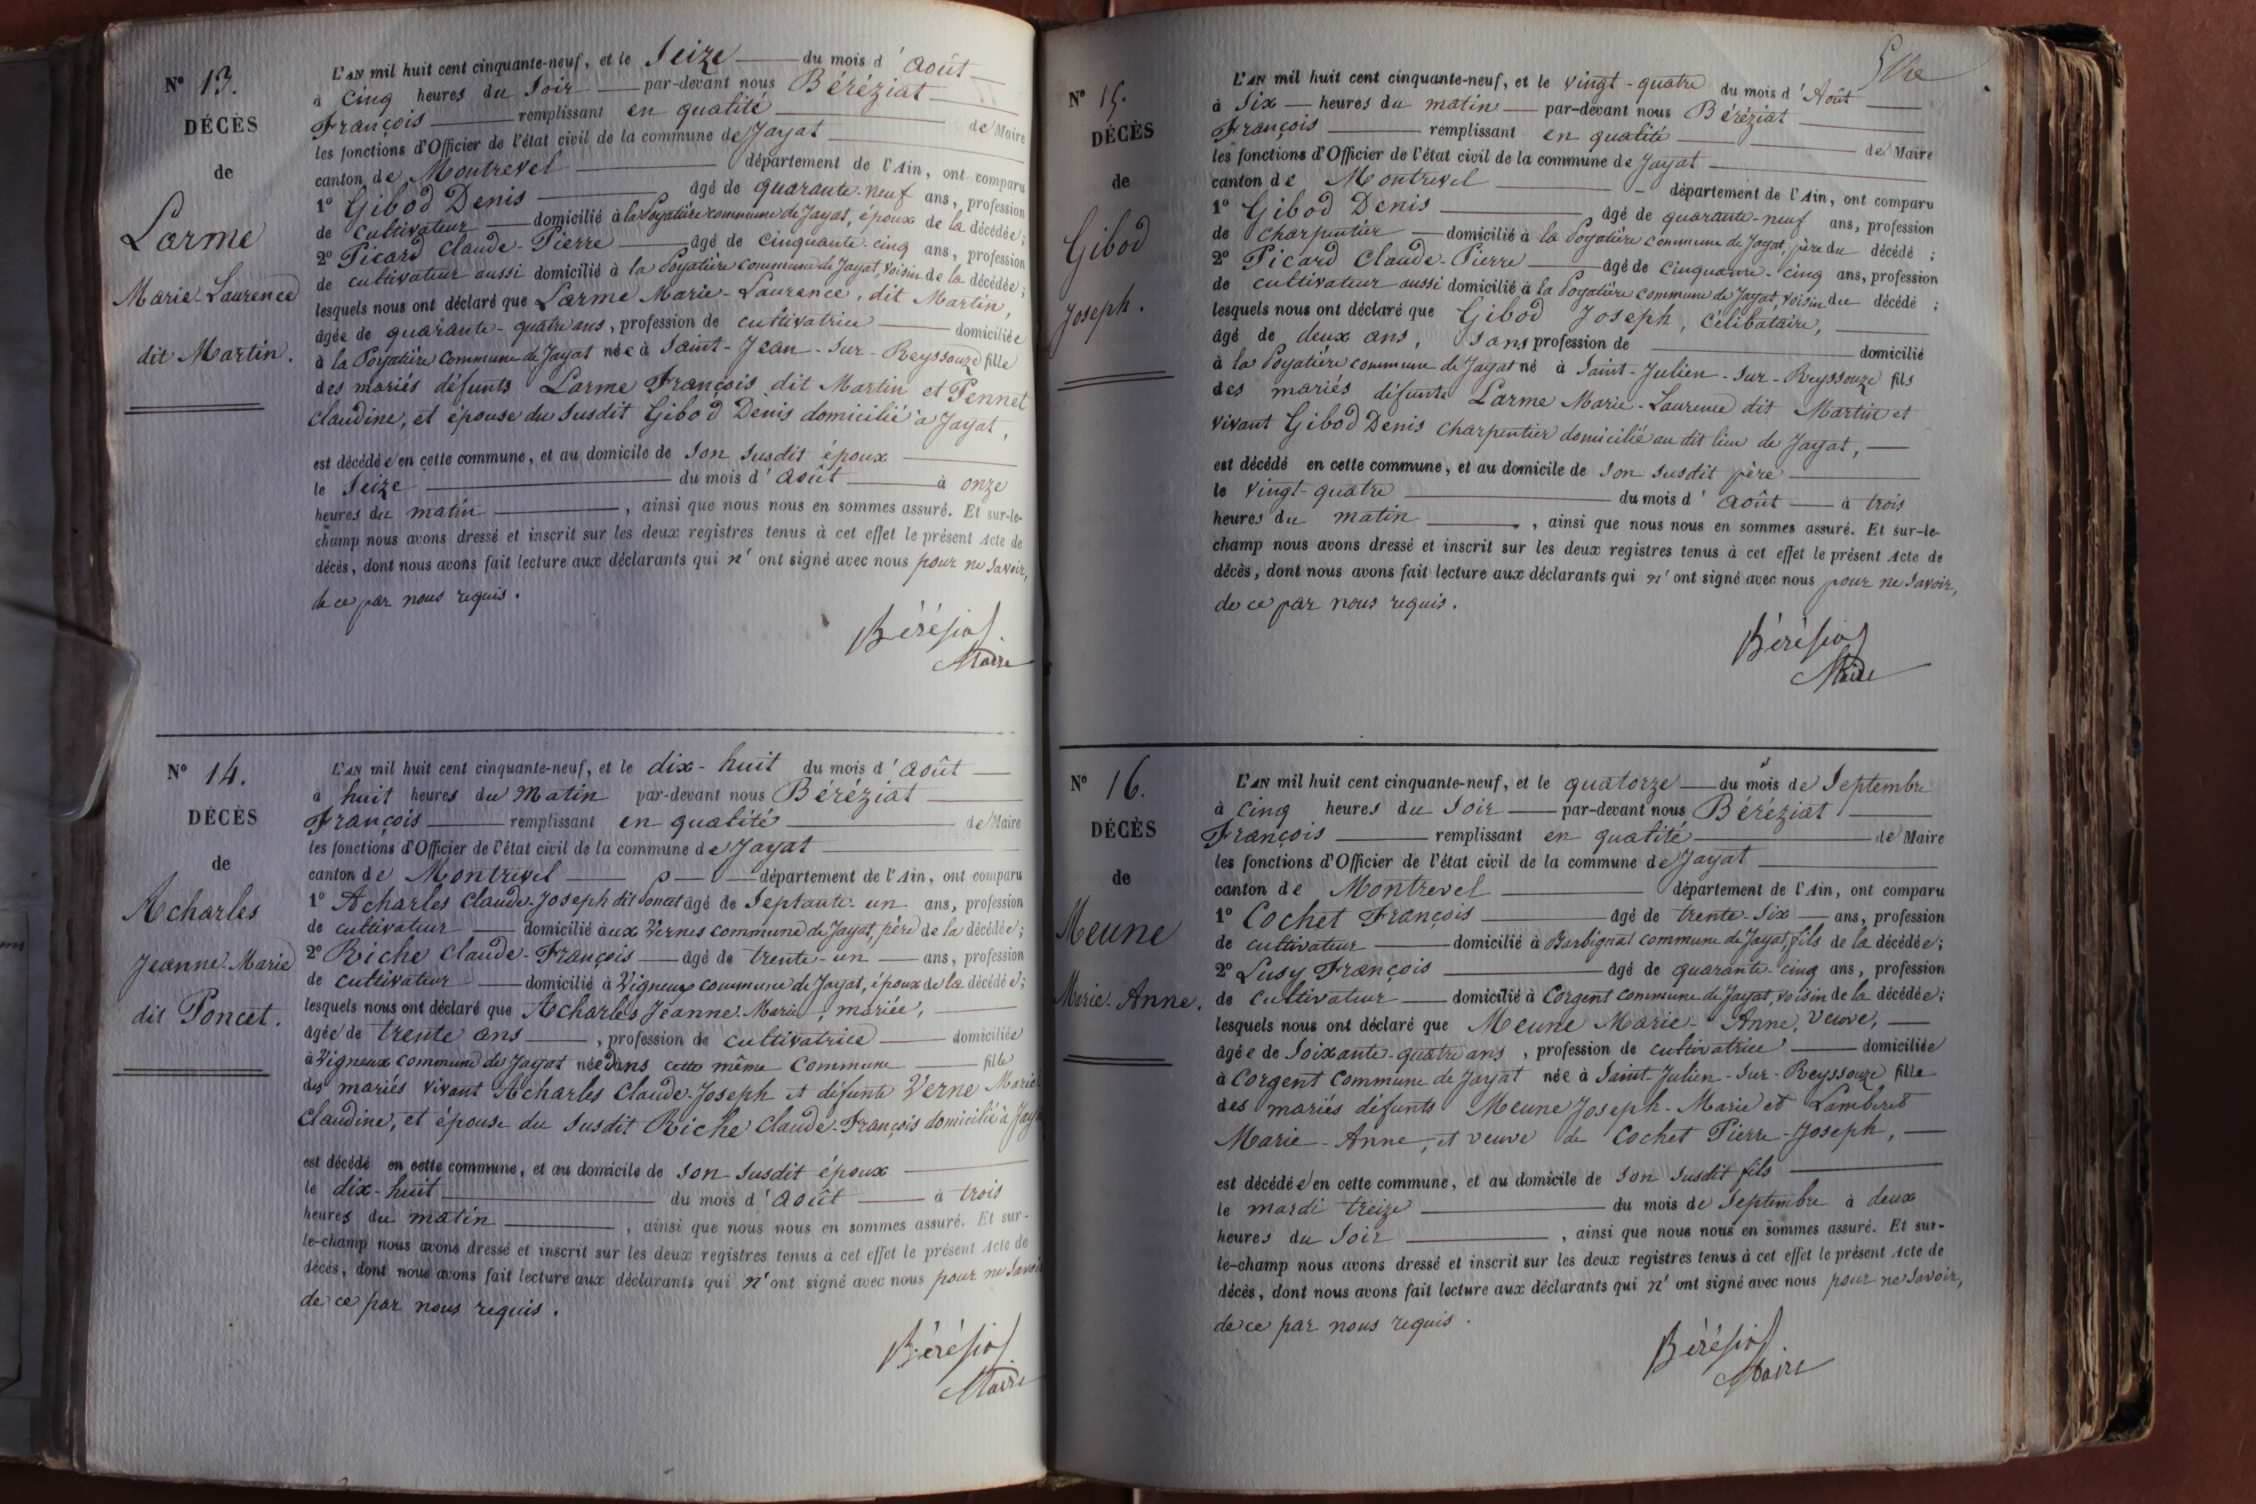 N° 13.
DÉCÈS
de
Larme
Marie-Laurence
dit Martin.
L'AN mil huit cent cinquante-neuf, et le Seize du mois d'août
à cinq heures du Soir par-devant nous Béréziat
François remplissant en qualité de Maire
les fonctions d'Officier de l'état civil de la commune de Jayat
canton de Montrevel département de l'Ain, ont comparu
1° Gibod Denis âgé de quarante-neuf ans, profession
de cultivateur domicilié à la Poyatière commune de Jayat, époux de la décédée;
2° Picard Claude-Pierre âgé de cinquante-cinq ans, profession
de cultivateur aussi domicilié à la Poyatière commune de Jayat, voisin de la décédée;
lesquels nous ont déclaré que Larme Marie-Laurence, dit Martin,
âgée de quarante-quatre ans, profession de cultivatrice domiciliée
à la Poyatière commune de Jayat née à Saint-Jean-sur-Reyssouze fille
des mariés défunts Larme François dit Martin et Pennet
Claudine, et épouse du susdit Gibod Denis domicilié à Jayat,
est décédée en cette commune, et au domicile de son susdit époux
le Seize du mois d'août à onze
heures du matin, ainsi que nous nous en sommes assuré. Et sur-le-
champ nous avons dressé et inscrit sur les deux registres tenus à cet effet le présent Acte de
décès, dont nous avons fait lecture aux déclarants qui n'ont signé avec nous pour ne savoir,
de ce par nous requis.
Béréziat
Maire
N° 14.
DÉCÈS
de
Acharles
Jeanne-Marie
dit Poncet.
L'AN mil huit cent cinquante-neuf, et le dix-huit du mois d'août
à huit heures du Matin par-devant nous Béréziat
François remplissant en qualité de Maire
les fonctions d'Officier de l'état civil de la commune de Jayat
canton de Montrevel département de l'Ain, ont comparu
1° Acharles Claude-Joseph dit Poncet âgé de Septante-un ans, profession
de cultivateur domicilié aux Vernes commune de Jayat, père de la décédée;
2° Riche Claude-François âgé de trente-un ans, profession
de cultivateur domicilié à Vigneux commune de Jayat, époux de la décédée;
lesquels nous ont déclaré que Acharles Jeanne-Marie, mariée,
âgée de trente ans, profession de cultivatrice domiciliée
à Vigneux commune de Jayat née dans cette même Commune fille
des mariés vivant Acharles Claude-Joseph et défunte Verne Marie
Claudine, et épouse du susdit Riche Claude-François domicilié à Jayat
est décédé en cette commune, et au domicile de son susdit époux
le dix-huit du mois d'août à trois
heures du matin, ainsi que nous nous en sommes assuré. Et sur-
le-champ nous avons dressé et inscrit sur les deux registres tenus à cet effet le présent Acte de
décès, dont nous avons fait lecture aux déclarants qui n'ont signé avec nous pour ne savoir
de ce par nous requis.
Béréziat
Maire
N° 15.
DÉCÈS
de
Gibod
Joseph.
L'AN mil huit cent cinquante-neuf, et le vingt-quatre du mois d'Août
à Six heures du matin par-devant nous Béréziat
François remplissant en qualité de Maire
les fonctions d'Officier de l'état civil de la commune de Jayat
canton de Montrevel département de l'Ain, ont comparu
1° Gibod Denis âgé de quarante-neuf ans, profession
de charpentier domicilié à la Poyatière commune de Jayat, père du décédé;
2° Picard Claude-Pierre âgé de cinquante-cinq ans, profession
de cultivateur aussi domicilié à la Poyatière commune de Jayat, voisin du décédé;
lesquels nous ont déclaré que Gibod Joseph, Célibataire,
âgé de deux ans, sans profession de domicilié
à la Poyatière commune de Jayat né à Saint-Julien-sur-Reyssouze fils
des mariés défunte Larme Marie-Laurence dit Martin et
vivant Gibod Denis charpentier domicilié au dit lieu de Jayat,
est décédé en cette commune, et au domicile de son susdit père
le vingt-quatre du mois d'août à trois
heures du matin, ainsi que nous nous en sommes assuré. Et sur-le-
champ nous avons dressé et inscrit sur les deux registres tenus à cet effet le présent Acte de
décès, dont nous avons fait lecture aux déclarants qui n'ont signé avec nous pour ne savoir,
de ce par nous requis.
Béréziat
Maire
N° 16.
DÉCÈS
de
Meune
Marie-Anne.
L'AN mil huit cent cinquante-neuf, et le quatorze du mois de Septembre
à cinq heures du Soir par-devant nous Béréziat
François remplissant en qualité de Maire
les fonctions d'Officier de l'état civil de la commune de Jayat
canton de Montrevel département de l'Ain, ont comparu
1° Cochet François âgé de trente-six ans, profession
de cultivateur domicilié à Barbignat commune de Jayat, fils de la décédée;
2° Lusy François âgé de quarante-cinq ans, profession
de cultivateur domicilié à Corgent commune de Jayat, voisin de la décédée;
lesquels nous ont déclaré que Meune Marie-Anne, veuve,
âgée de soixante-quatre ans, profession de cultivatrice domiciliée
à Corgent commune de Jayat née à Saint-Julien-sur-Reyssouze fille
des mariés défunts Meune Joseph-Marie et Lamberet
Marie-Anne, et veuve de Cochet Pierre-Joseph,
est décédée en cette commune, et au domicile de son susdit fils
le mardi treize du mois de Septembre à deux
heures du Soir, ainsi que nous nous en sommes assuré. Et sur-
le-champ nous avons dressé et inscrit sur les deux registres tenus à cet effet le présent Acte de
décès, dont nous avons fait lecture aux déclarants qui n'ont signé avec nous pour ne savoir,
de ce par nous requis.
Béréziat
Maire